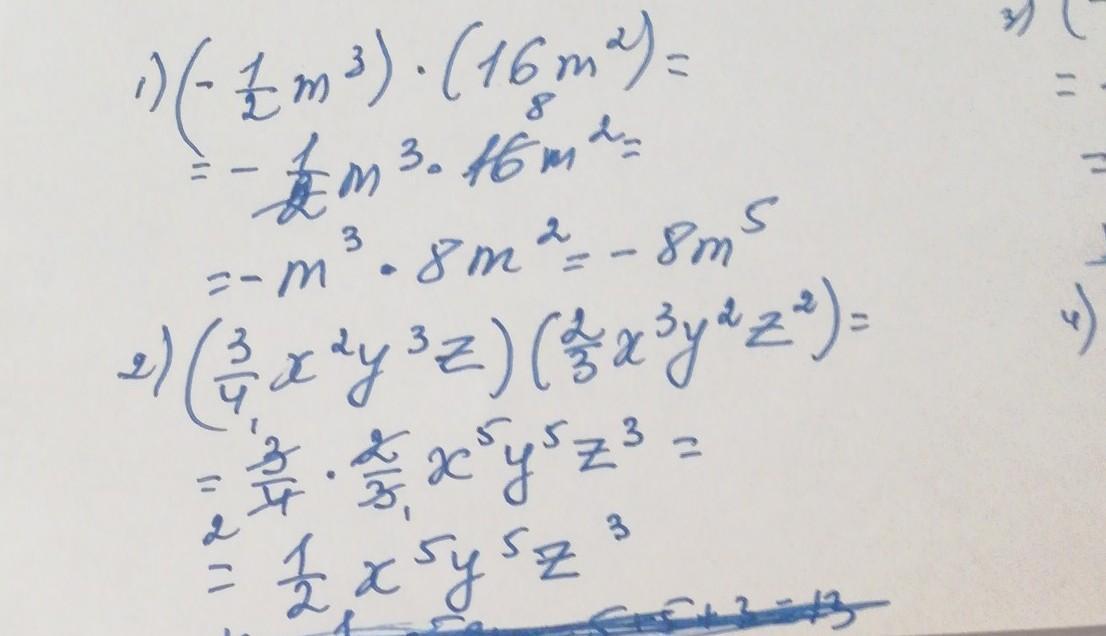 1) (-1/2 m³) · (16m²) =
= - 1/2 m³ · 16 8 m² =
= - m³ · 8m² = - 8m⁵
2) (3/4 x²y³z) (2/3 x³y²z²) =
= 3/4 · 2/3 x⁵y⁵z³ =
= 1/2 x⁵y⁵z³
5+5+3=13
3) (
=
=
4)